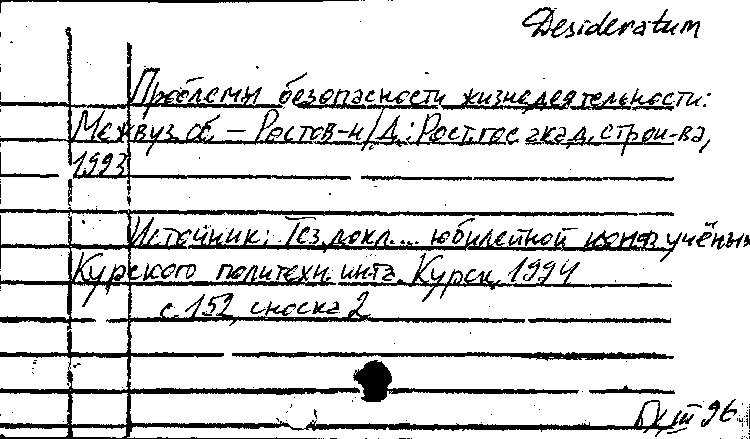 Desideratum
Проблемы безопасности жизнедеятельности:
Межвуз. сб. – Ростов-н/Д.: Рост. гос. акад. строи-ва,
1993
Источник: Тез. докл.... юбилейной конф. учёных
Курского политехн. ин-та. Курск, 1994
с. 152, сноска 2
III 96